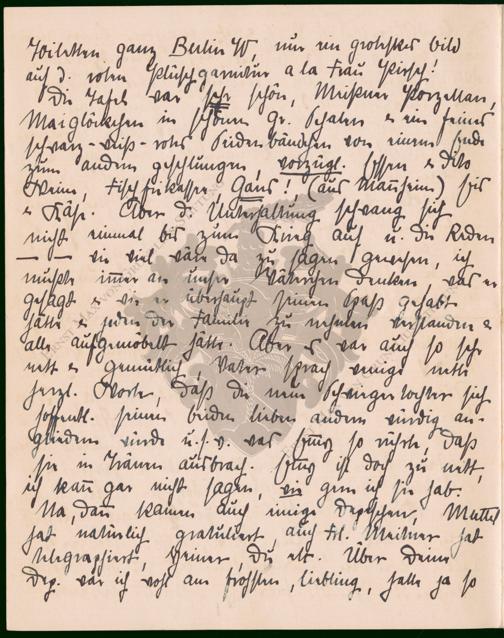 Toiletten ganz Berlin W, nur ein groteskes Bild
auf d. roten Plüschgarnitur a la Frau Hirsch!
Die Tafel war sehr schön, Meißner Porzellan,
Maiglöckchen in schönen gr. Schalen u ein feines
schwarz-weiß-rotes Seidenbändchen von einem Ende
zum andern geschlungen, vorzügl. Essen u dito
Weine, Fisch Gans! (aus Mannheim) Eis
u Käse. Aber d. Unterhaltung schwang sich
nicht einmal bis zum Krieg auf u. die Reden
— — wie viel wäre da zu sagen gewesen, ich
mußte immer an unser Väterchen denken was er
gesagt u wie er überhaupt seinen Spaß gehabt
hätte u jeden der Familie zu nehmen verstanden u
alle aufgemöbelt hätte. Aber es war auch so sehr
nett u gemütlich, Vater sprach einige nette
herzl. Worte, daß die neue Schwiegertochter sich
hoffentl. seinen beiden lieben andern würdig an-
gliedern würde u.s.w. was so rührte, daß
sie in Tränen ausbrach. ist doch zu nett,
ich kann gar nicht sagen, wie gern ich sie hab.
Na, dann kamen auch einige Depeschen, Muttel
hat natürlich gratuliert, auch Frl. Meitner hat
telegraphiert, Heiner, Du etc. Über Deine
Dep. war ich wohl am frohsten, Liebling, hatte ja so